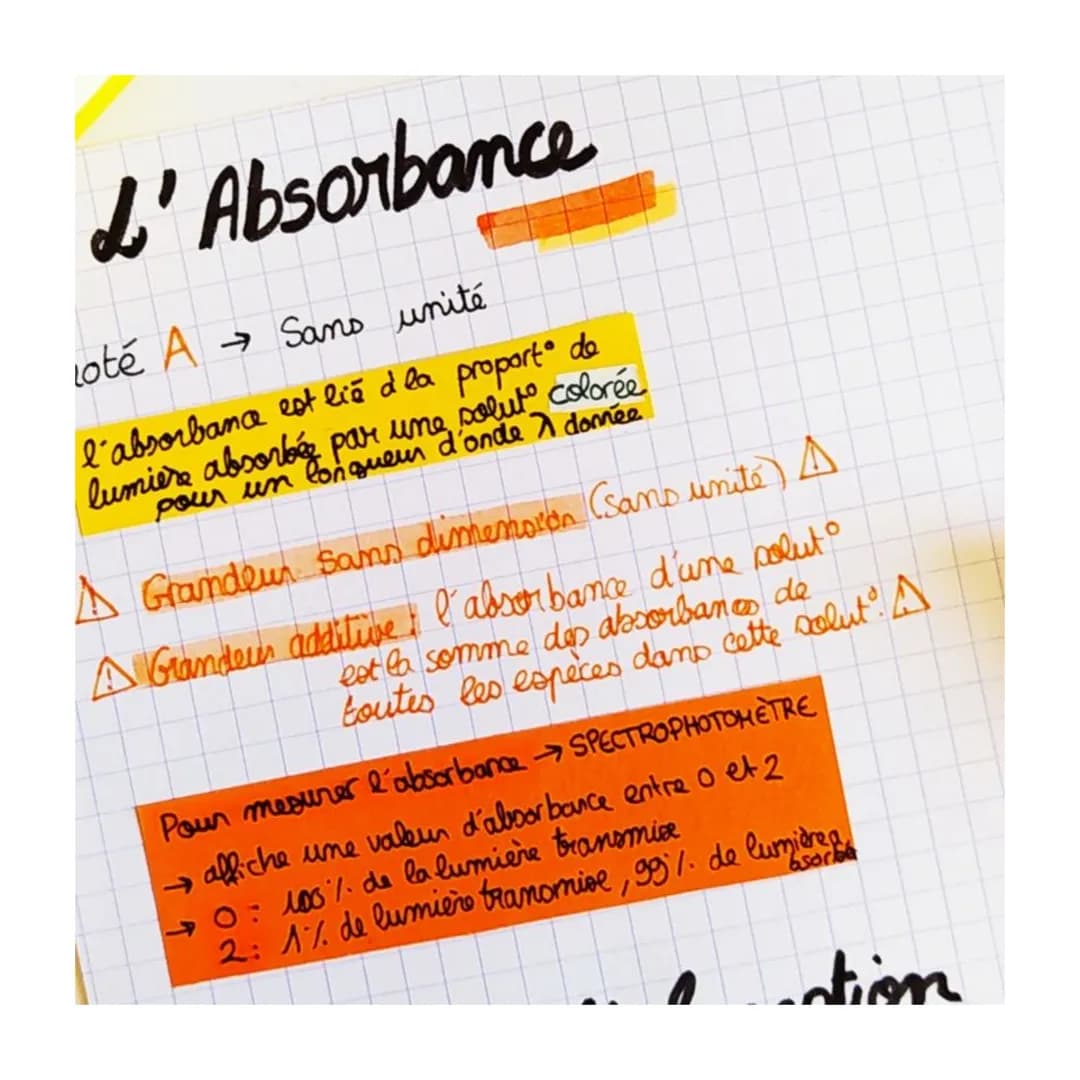 L'Absorbance
noté A → Sans unité
l'absorbance est lié à la proport° de
lumière absorbée par une solut° colorée
pour un longueur d'onde λ donnée
⚠ Grandeur sans dimension (sans unité) ⚠
⚠ Grandeur additive : l'absorbance d'une solut°
est la somme des absorbances de
toutes les espèces dans cette solut°. ⚠
Pour mesurer l'absorbance → SPECTROPHOTOMÈTRE
→ affiche une valeur d'absorbance entre 0 et 2
→ 0 : 100 % de la lumière transmise
2 : 1 % de lumière transmise, 99 % de lumière absorbée